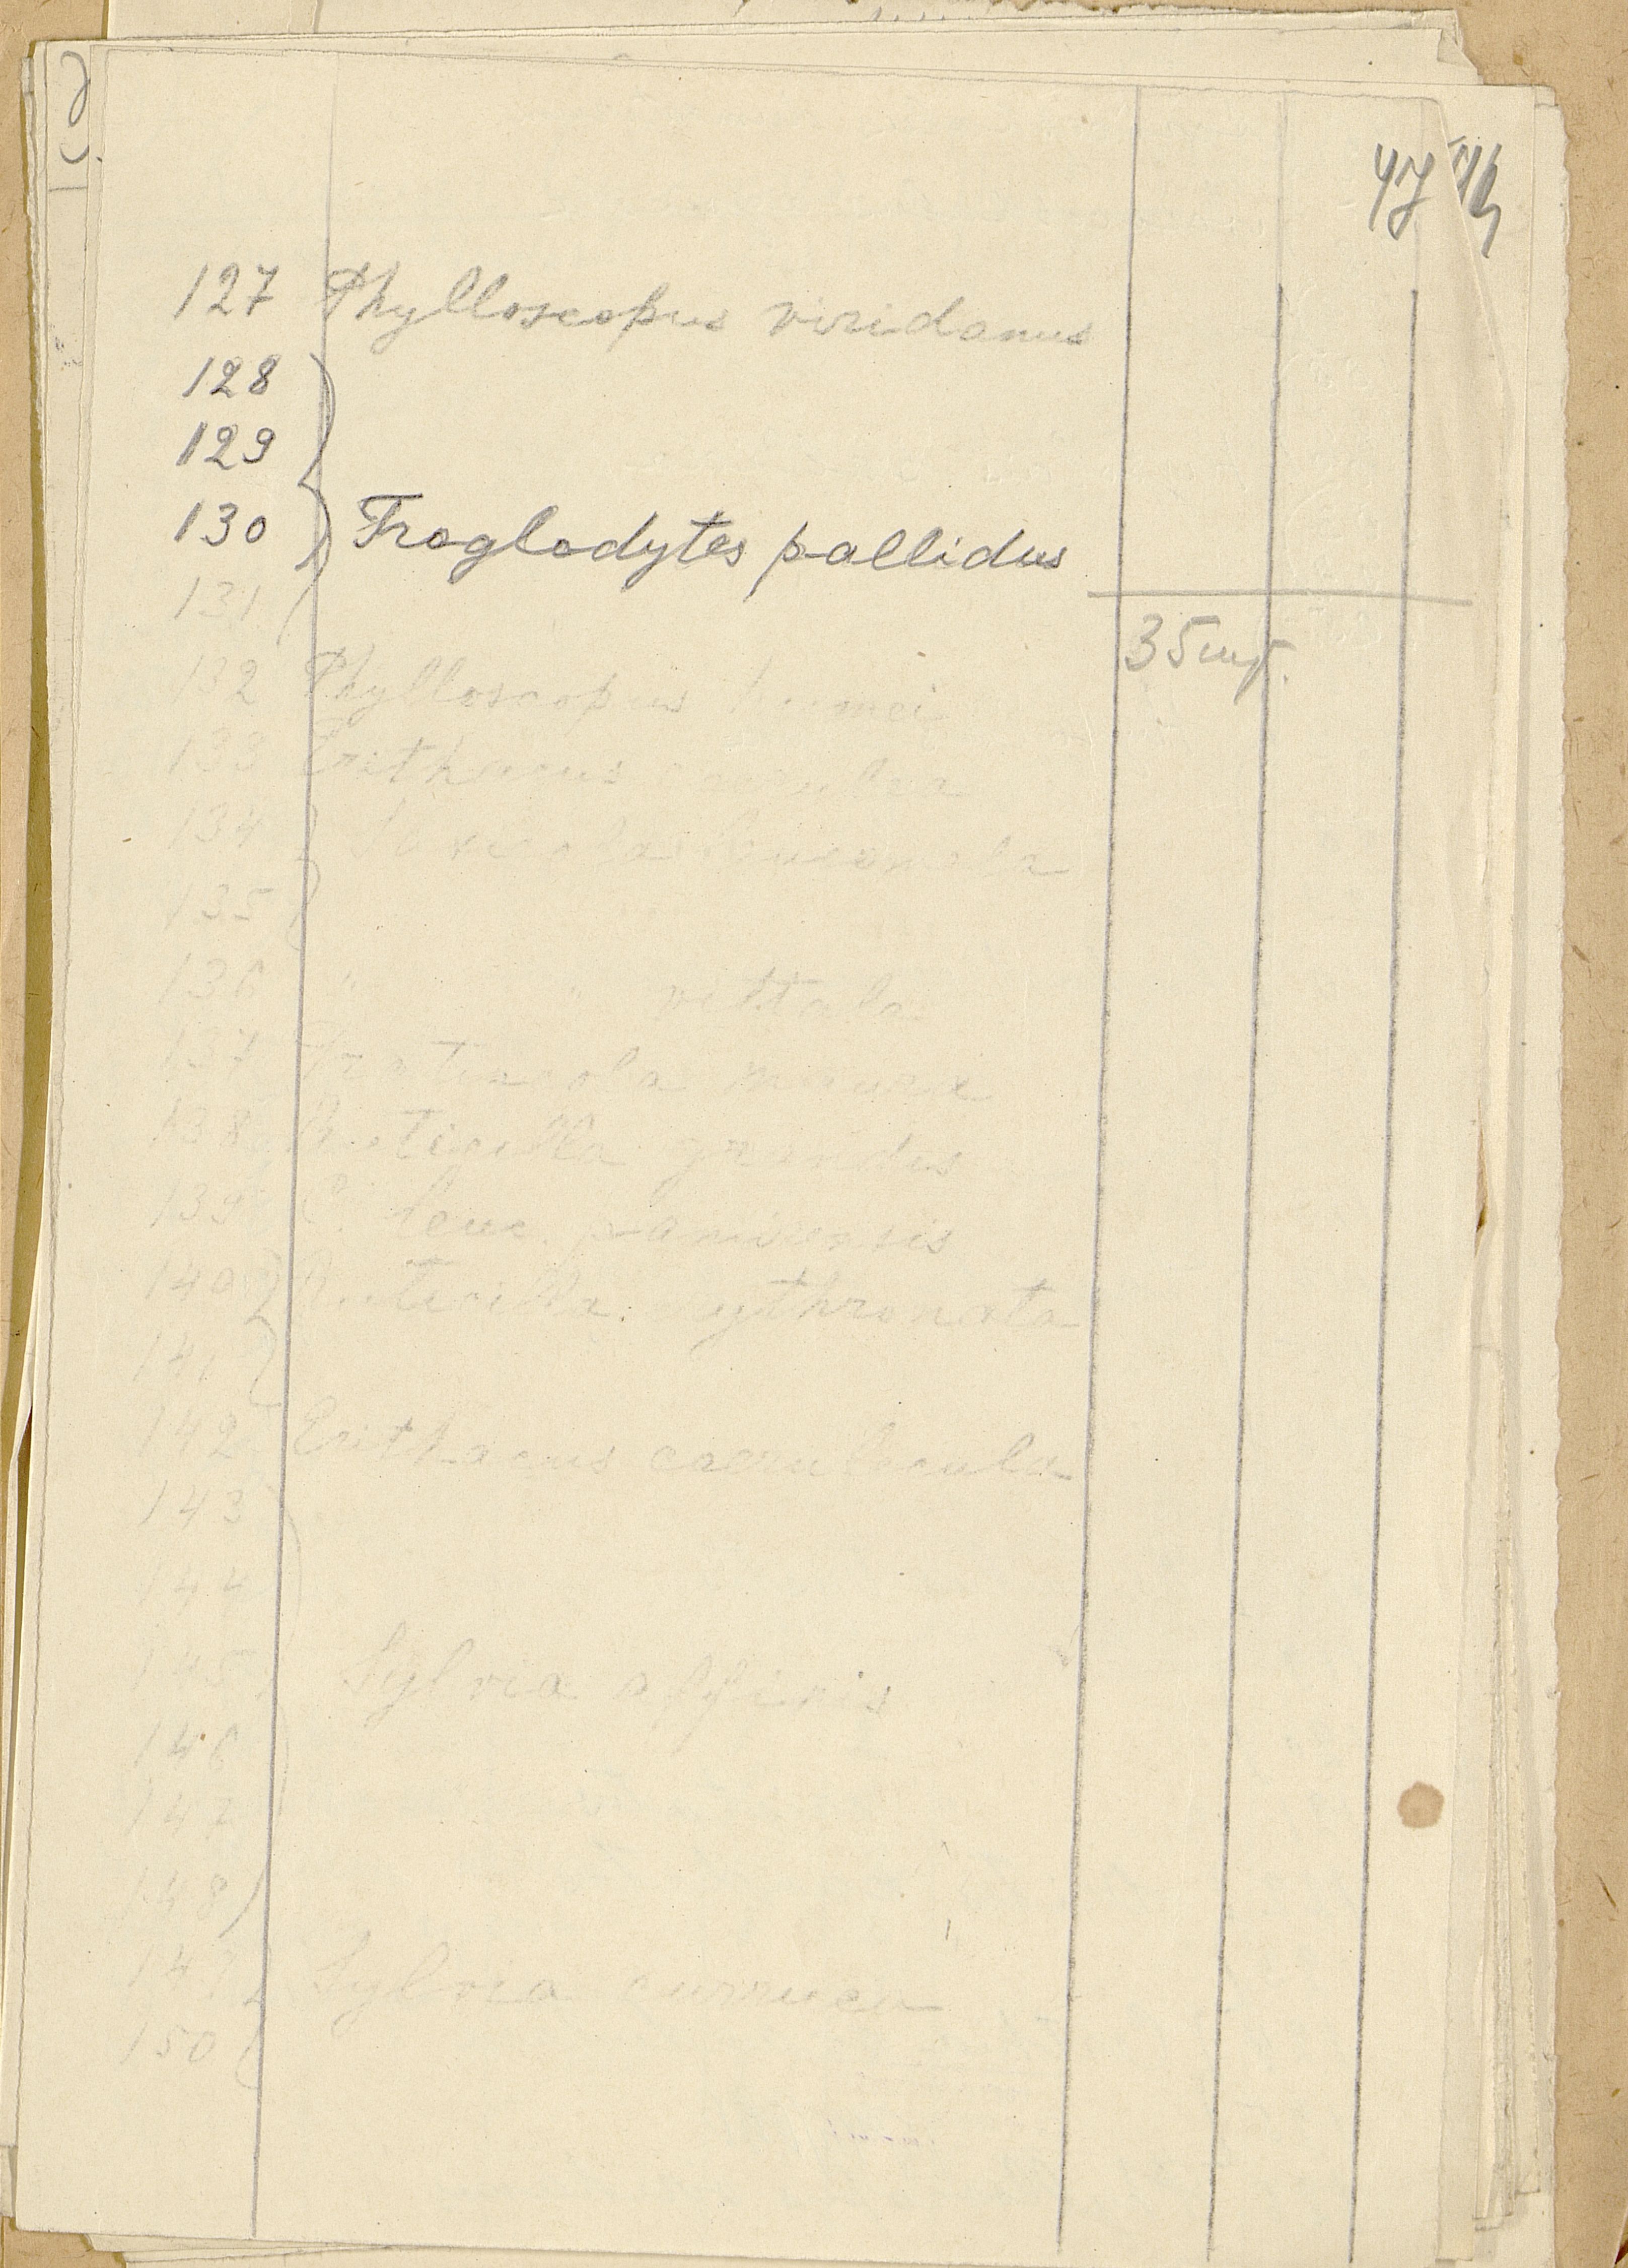 47
127 Phylloscopus viridanus
128
129
130 Troglodytes pallidus
131
35 шт.
132 Phylloscopus humei
133 Erithacus
134 Saxicola
135
136 " " vittata
137 Pratincola maura
138 Ruticilla grandis
139 C. leuc. pamirensis
140 Ruticilla erythronota
141
142 Erithacus caerulecula
143
144
145 Sylvia affinis
146
147
148
149 Sylvia curruca
150